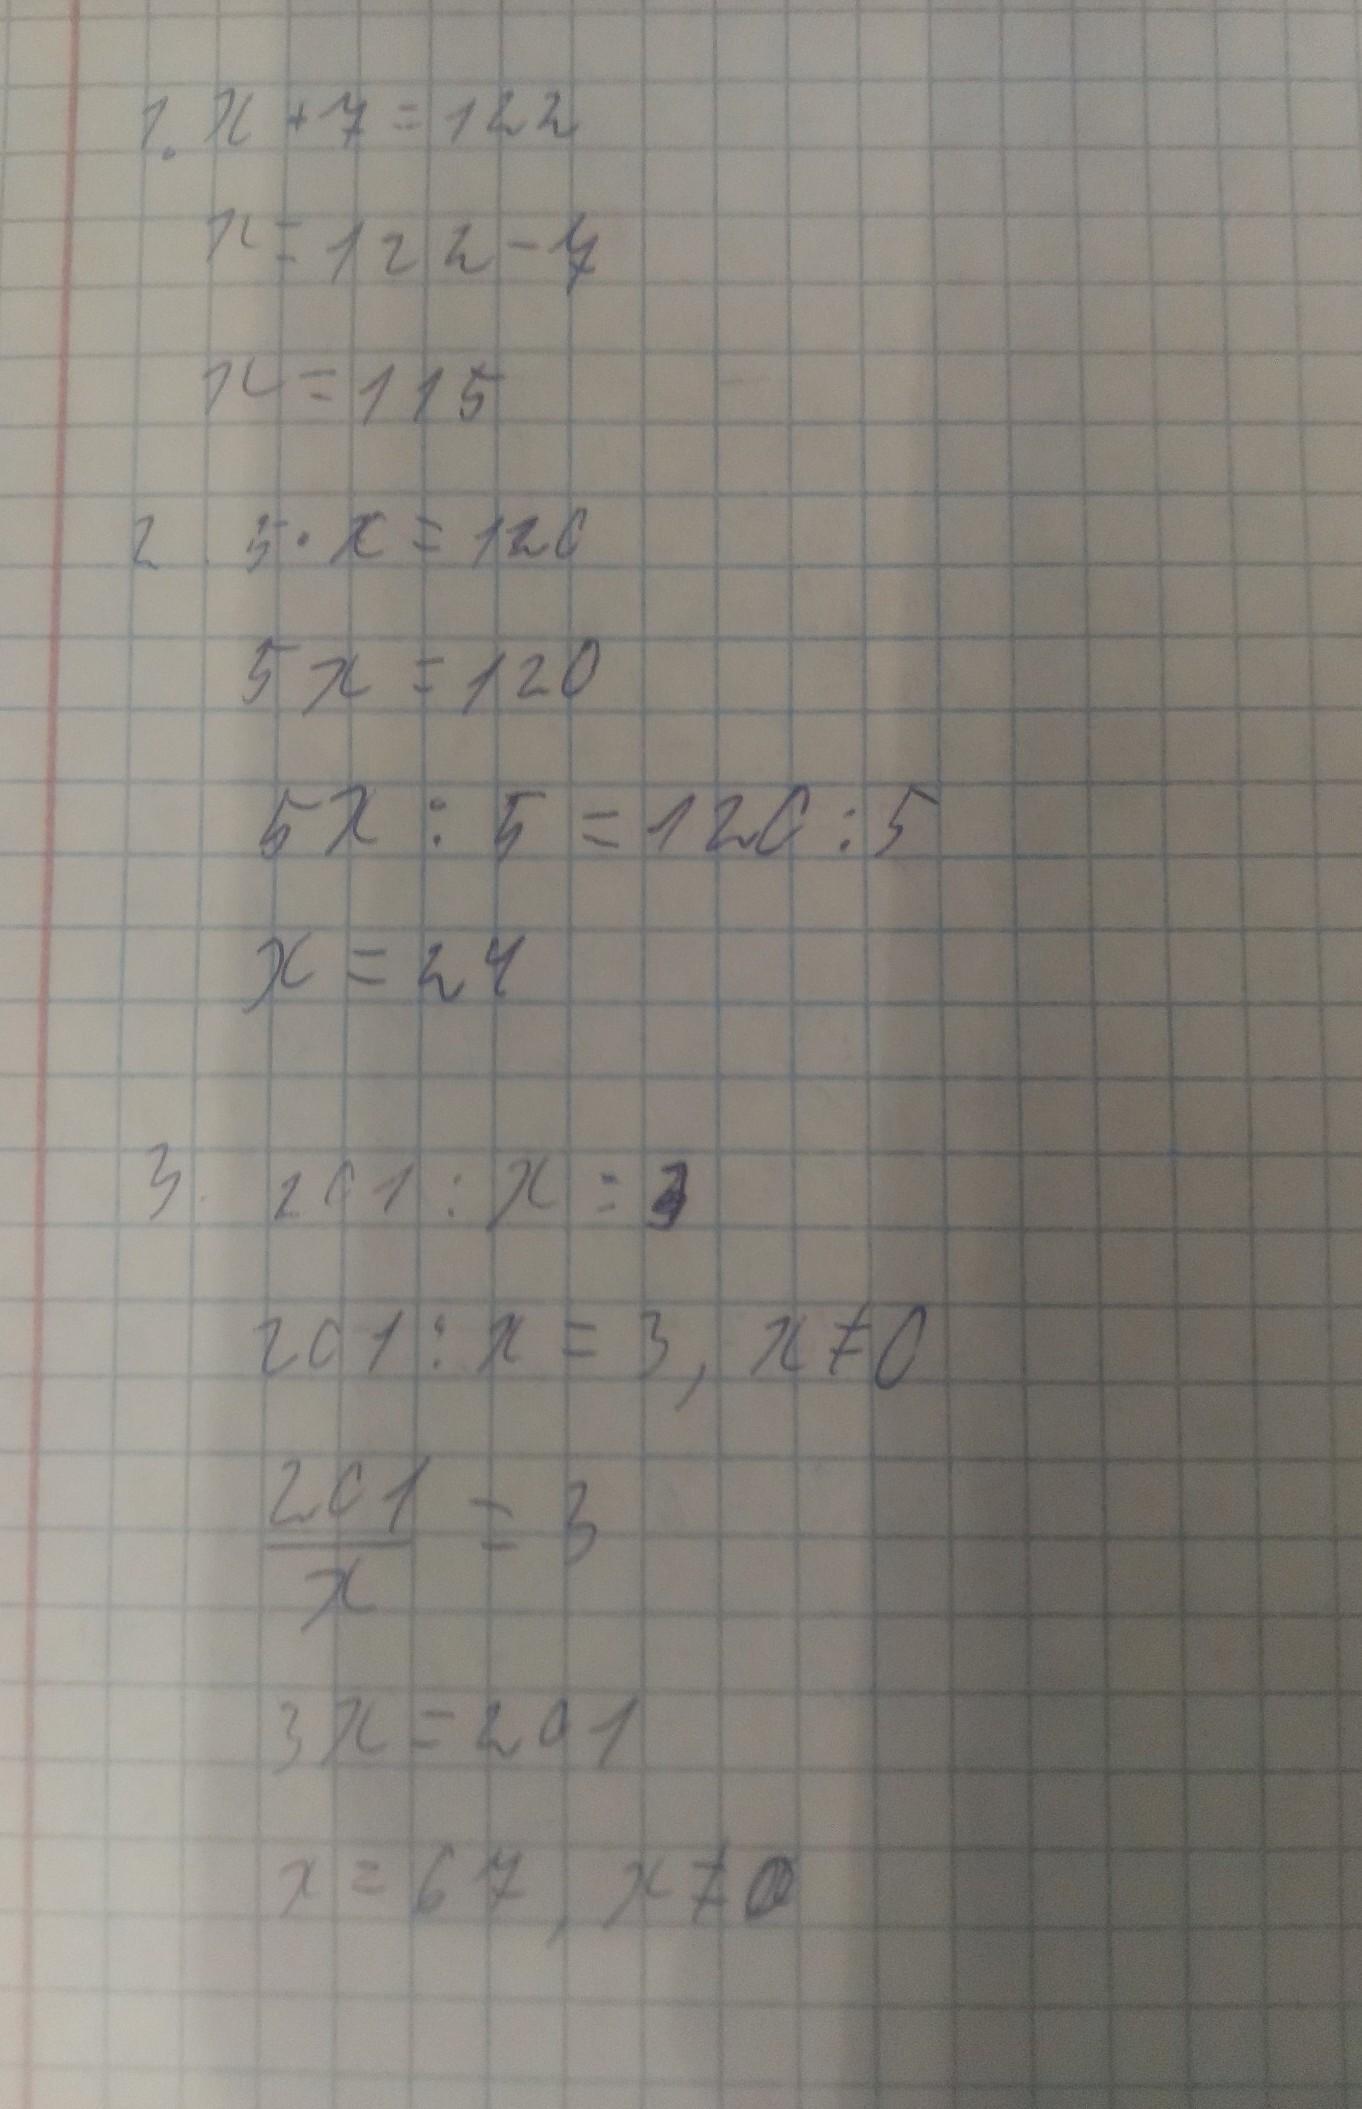 1. x + 7 = 122
x = 122 - 7
x = 115
2. 5 · x = 120
5x = 120
5x : 5 = 120 : 5
x = 24
3. 201 : x = 3
201 : x = 3, x ≠ 0
201/x = 3
3x = 201
x = 67, x ≠ 0